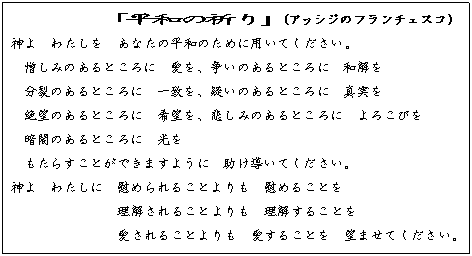 「平和の祈り」(アッシジのフランチェスコ)
神よ　わたしを　あなたの平和のために用いてください。
憎しみのあるところに　愛を、争いのあるところに　和解を
分裂のあるところに　一致を、疑いのあるところに　真実を
絶望のあるところに　希望を、悲しみのあるところに　よろこびを
暗闇のあるところに　光を
もたらすことができますように　助け導いてください。
神よ　わたしに　慰められることよりも　慰めることを
理解されることよりも　理解することを
愛されることよりも　愛することを　望ませてください。